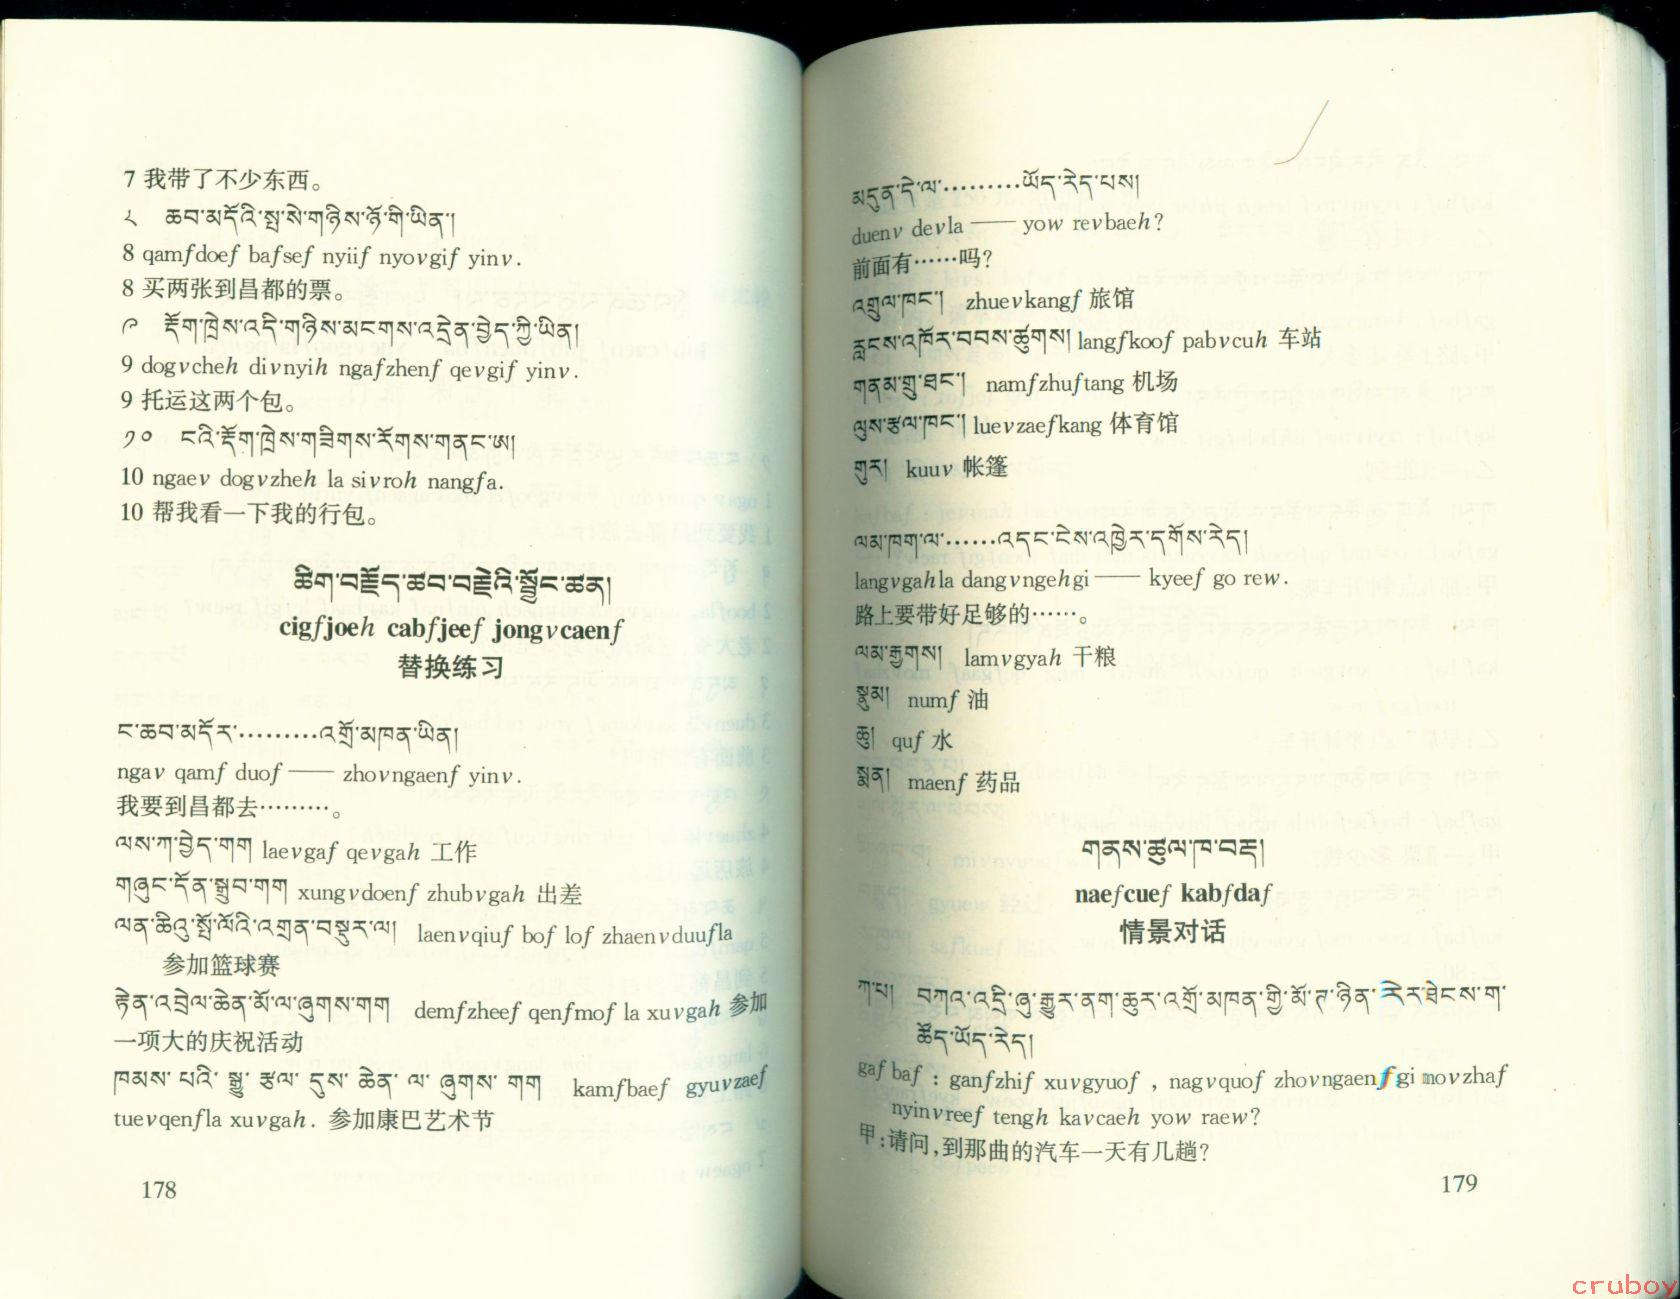 7 我带了不少东西。
༨ ཆབ་མདོའི་སྤ་སེ་གཉིས་ཉོ་གི་ཡིན།
8 qamfdoef bafsef nyiif nyovgif yinv.
8 买两张到昌都的票。
༩ རྡོག་ཁྲེས་འདི་གཉིས་མངགས་འདྲེན་བྱེད་ཀྱི་ཡིན།
9 dogvcheh divnyih ngafzhenf qevgif yinv.
9 托运这两个包。
༡༠ ངའི་རྡོག་ཁྲེས་གཟིགས་རོགས་གནང་ཨ།
10 ngaev dogvzheh la sivroh nangfa.
10 帮我看一下我的行包。
ཚིག་བརྗོད་ཚབ་བརྗེའི་སྦྱོང་ཚན།
cigfjoeh cabfjeef jongvcaenf
替换练习
ང་ཆབ་མདོར་………འགྲོ་མཁན་ཡིན།
ngav qamf duof —— zhovngaenf yinv.
我要到昌都去………。
ལས་ཀ་བྱེད་གག laevgaf qevgah 工作
གཞུང་དོན་སྒྲུབ་གག xungvdoenf zhubvgah 出差
ལན་ཆིའུ་སྤོ་ལོའི་འགྲན་བསྡུར་ལ། laenvqiuf bof lof zhaenvduufla
参加篮球赛
རྟེན་འབྲེལ་ཆེན་མོ་ལ་ཞུགས་གག demfzheef qenfmof la xuvgah 参加
一项大的庆祝活动
ཁམས་ པའི་ སྒྱུ་ རྩལ་ དུས་ ཆེན་ ལ་ ཞུགས་ གག kamfbaef gyuvzaef
tuevqenfla xuvgah. 参加康巴艺术节
178
མདུན་དེ་ལ་………ཡོད་རེད་པས།
duenv devla —— yow revbaeh?
前面有……吗?
འགྲུལ་ཁང་། zhuevkangf 旅馆
རླངས་འཁོར་བབས་ཚུགས། langfkoof pabvcuh 车站
གནམ་གྲུ་ཐང་། namfzhuftang 机场
ལུས་རྩལ་ཁང་། luevzaefkang 体育馆
གུར། kuuv 帐篷
ལམ་ཁག་ལ་……འདང་ངེས་འཁྱེར་དགོས་རེད།
langvgahla dangvngehgi —— kyeef go rew.
路上要带好足够的……。
ལམ་རྒྱགས། lamvgyah 干粮
སྣུམ། numf 油
ཆུ། quf 水
སྨན། maenf 药品
གནས་ཚུལ་ཁ་བརྡ།
naefcuef kabfdaf
情景对话
ཀ་པ། བཀའ་འདྲི་ཞུ་རྒྱུར་ནག་ཆུར་འགྲོ་མཁན་གྱི་མོ་ཊ་ཉིན་རེར་ཐེངས་ག་
ཚོད་ཡོད་རེད།
gaf baf : ganfzhif xuvgyuof , nagvquof zhovngaenfgi movzhaf
nyinvreef tengh kavcaeh yow raew?
甲:请问,到那曲的汽车一天有几趟?
179
cruboy